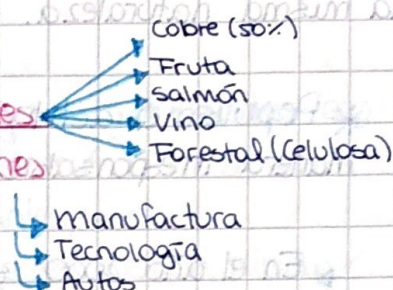 Cobre (50%)
Fruta
Salmón
es
Vino
Forestal (Celulosa)
nes
manufactura
Tecnología
Autos